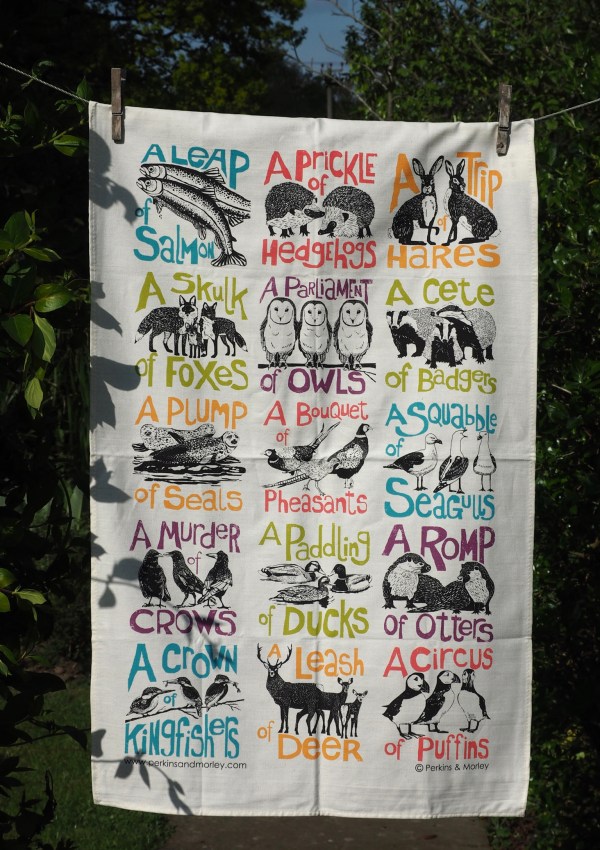 A LEAP
of
SALMON
A PRICKLE
of
HEDGEHOGS
A TRIP
of
HARES
A SKULK
of FOXES
A PARLIAMENT
of OWLS
A CETE
of BADGERS
A PLUMP
of SEALS
A BOUQUET
of
PHEASANTS
A SQUABBLE
of
SEAGULLS
A MURDER
of
CROWS
A PADDLING
of DUCKS
A ROMP
of OTTERS
A CROWN
of
KINGFISHERS
A LEASH
of
DEER
A CIRCUS
of PUFFINS
www.perkinsandmorley.com
© Perkins & Morley